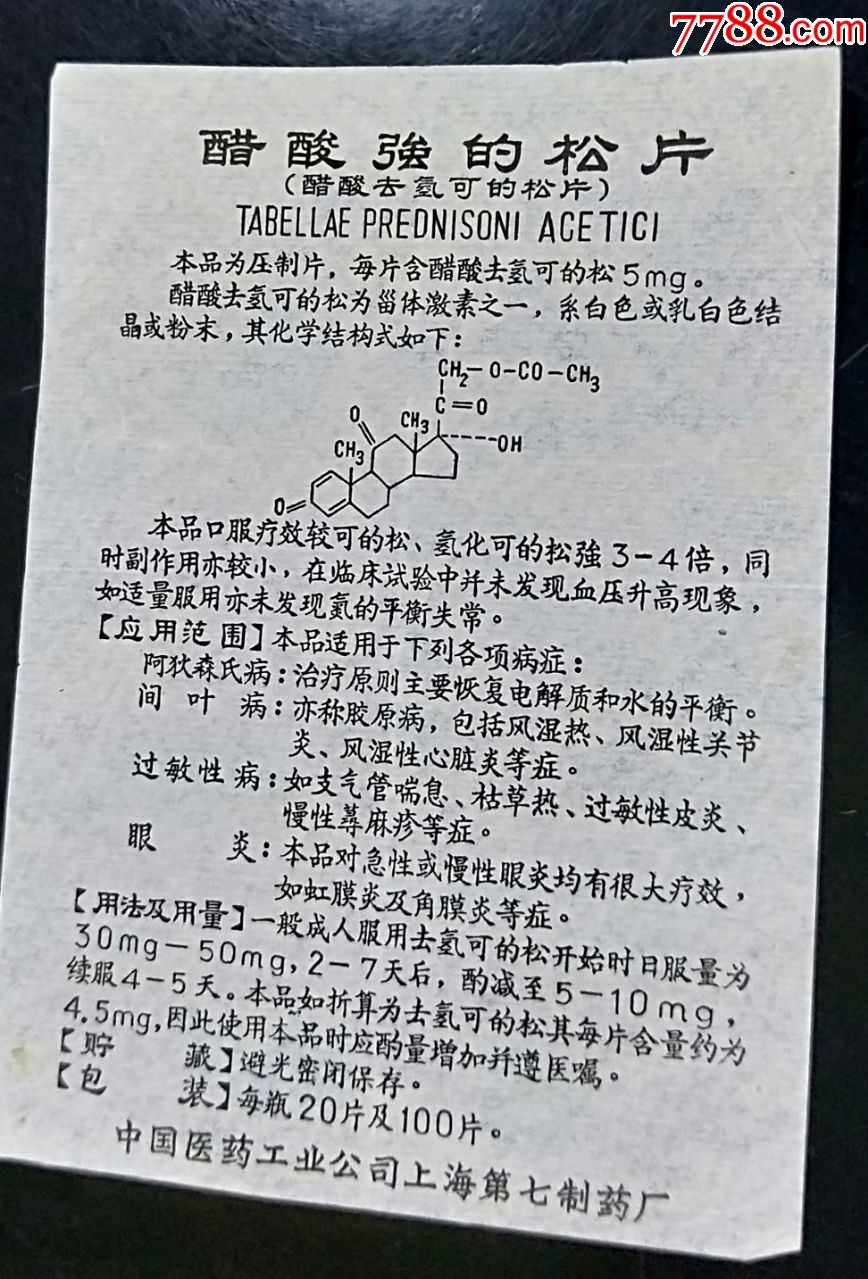 7788.com
醋酸強的松片
(醋酸去氢可的松片)
TABELLAE PREDNISONI ACETICI
本品为压制片，每片含醋酸去氢可的松5mg。
醋酸去氢可的松为甾体激素之一，系白色或乳白色结
晶或粉末，其化学结构式如下：
CH₂-O-CO-CH₃
C=O
CH₃
OH
O
CH₃
O
本品口服疗效较可的松、氢化可的松強3-4倍，同
时副作用亦较小，在临床试验中并未发现血压升高现象，
如适量服用亦未发现氮的平衡失常。
【应用范围】本品适用于下列各项病症：
阿狄森氏病：治疗原则主要恢复电解质和水的平衡。
间叶病：亦称胶原病，包括风湿热、风湿性关节
炎、风湿性心脏炎等症。
过敏性病：如支气管喘息、枯草热、过敏性皮炎、
慢性蕁麻疹等症。
眼炎：本品对急性或慢性眼炎均有很大疗效，
如虹膜炎及角膜炎等症。
【用法及用量】一般成人服用去氢可的松开始时日服量为
30mg-50mg，2-7天后，酌减至5-10mg，
续服4-5天。本品如折算为去氢可的松其每片含量约为
4.5mg，因此使用本品时应酌量增加并遵医嘱。
【贮藏】避光密闭保存。
【包装】每瓶20片及100片。
中国医药工业公司上海第七制药厂